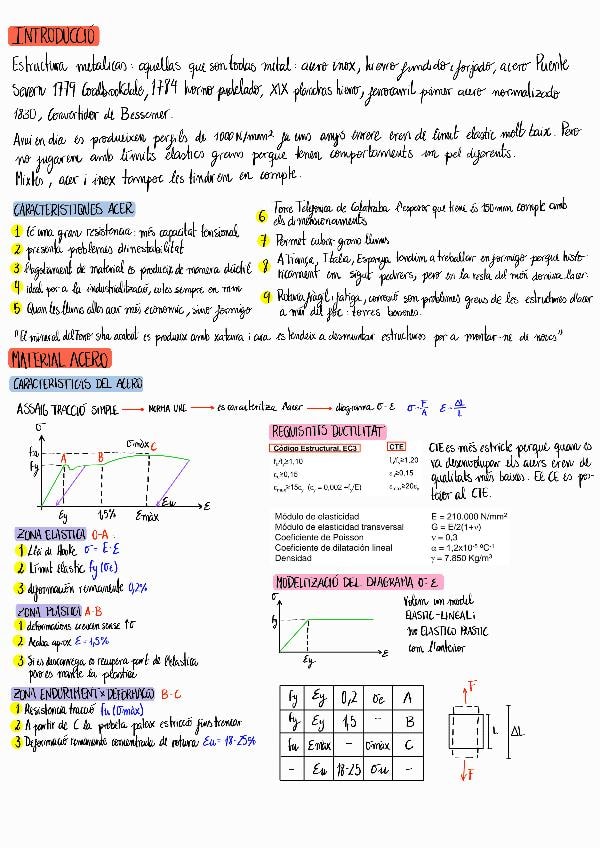 INTRODUCCIÓ
Estructura metalicas: aquellas que son todas metal: acero inox, hierro fundido i forjado, acero Puente
Severn 1779 Coalbrookdale, 1784 horno pudelado, XIX planchas hierro, ferrocarril primer acero normalizado
1830, Convertidor de Bessemer.
Avui en dia es produeixen perfils de 1000N/mm² ja uns anys enrere eren de límit elastic molt baix. Però
no jugarem amb límits elastics grans perque tenen comportaments un pel diferents.
Mixtes, acer i inox tampoc les tindrem en compte.
CARACTERISTIQUES ACER
1 té una gran resistencia: més capacitat tensional
2 presenta problemes d'inestabilitat
3 l'agotament de material es produeix de manera dúctil
4 ideal per a la industrialització,
5 Quan les llums altes acer més economic, sinó formigó
6 Torre Telefonica de Calatrava l'espesor que tenie és 150mm compte amb
els dimensionaments
7 Permet cubrir grans llums
8 A França, Italia, Espanya tendim a treballar en formigo perque histo
ricament em sigut pedrers, pero en la resta del món domina l'acer.
9 Rotura fragil i fatiga, corrosió son problemes greus de les estructures d'acer
a més del foc: torres bessones.
"El mineral del ferro s'ha acabat es produeix amb xatarra i ara es tendeix a desmuntar estructures per a montar-ne de noves"
MATERIAL ACERO
CARACTERISTICAS DEL ACERO
ASSAIG TRACCIÓ SIMPLE → NORMA UNE → es caracteritza l'acer → diagrama σ-ε σ=F/A ε=ΔL/L
σ
fu
fy
A
B
σmàx C
εy
1,5%
εmàx
εu
ε
ZONA ELASTICA O-A.
1 Llei de Hooke σ=E·ε
2 Límit elastic fy (σe)
3 deformación remanente 0,2%
ZONA PLÀSTICA A-B
1 deformacions creixen sense ↑σ
2 Acaba aprox ε=1,5%
3 Si es descarrega es recupera part de l'elastica
pero es manté la plastica
ZONA ENDURIMENT x DEFORMACIÓ B-C
1 Resistencia tracció fu (σmàx)
2 A partir de C la probeta pateix estricció fins trencar
3 Deformació romanente concentrada de rotura εu=18-25%
REQUISITES DUCTILITAT
Código Estructural, EC3
fu/fy≥1,10
εu≥0,15
εmax≥15εy (εy = 0,002 –fy/E)
CTE
fu/fy≥1,20
εu≥0,15
εmax≥20εy
CTE es més estricte perquè quan es
va desenvolupar els acers eren de
qualitats més baixes. El CE es pos-
terior al CTE.
Módulo de elasticidad E = 210.000 N/mm²
Módulo de elasticidad transversal G = E/2(1+ν)
Coeficiente de Poisson ν = 0,3
Coeficiente de dilatación lineal α = 1,2x10⁻⁵ ºC⁻¹
Densidad γ = 7.850 Kg/m³
MODELITZACIÓ DEL DIAGRAMA σ-ε
σ
fy
εy
ε
Volem un model
ELASTIC-LINEAL i
no ELASTICO PLASTIC
com l'anterior
fy εy 0,2 σe A
fy εy 1,5 - B
fu εmàx - σmàx C
- εu 18-25 σu -
F
L
ΔL
F